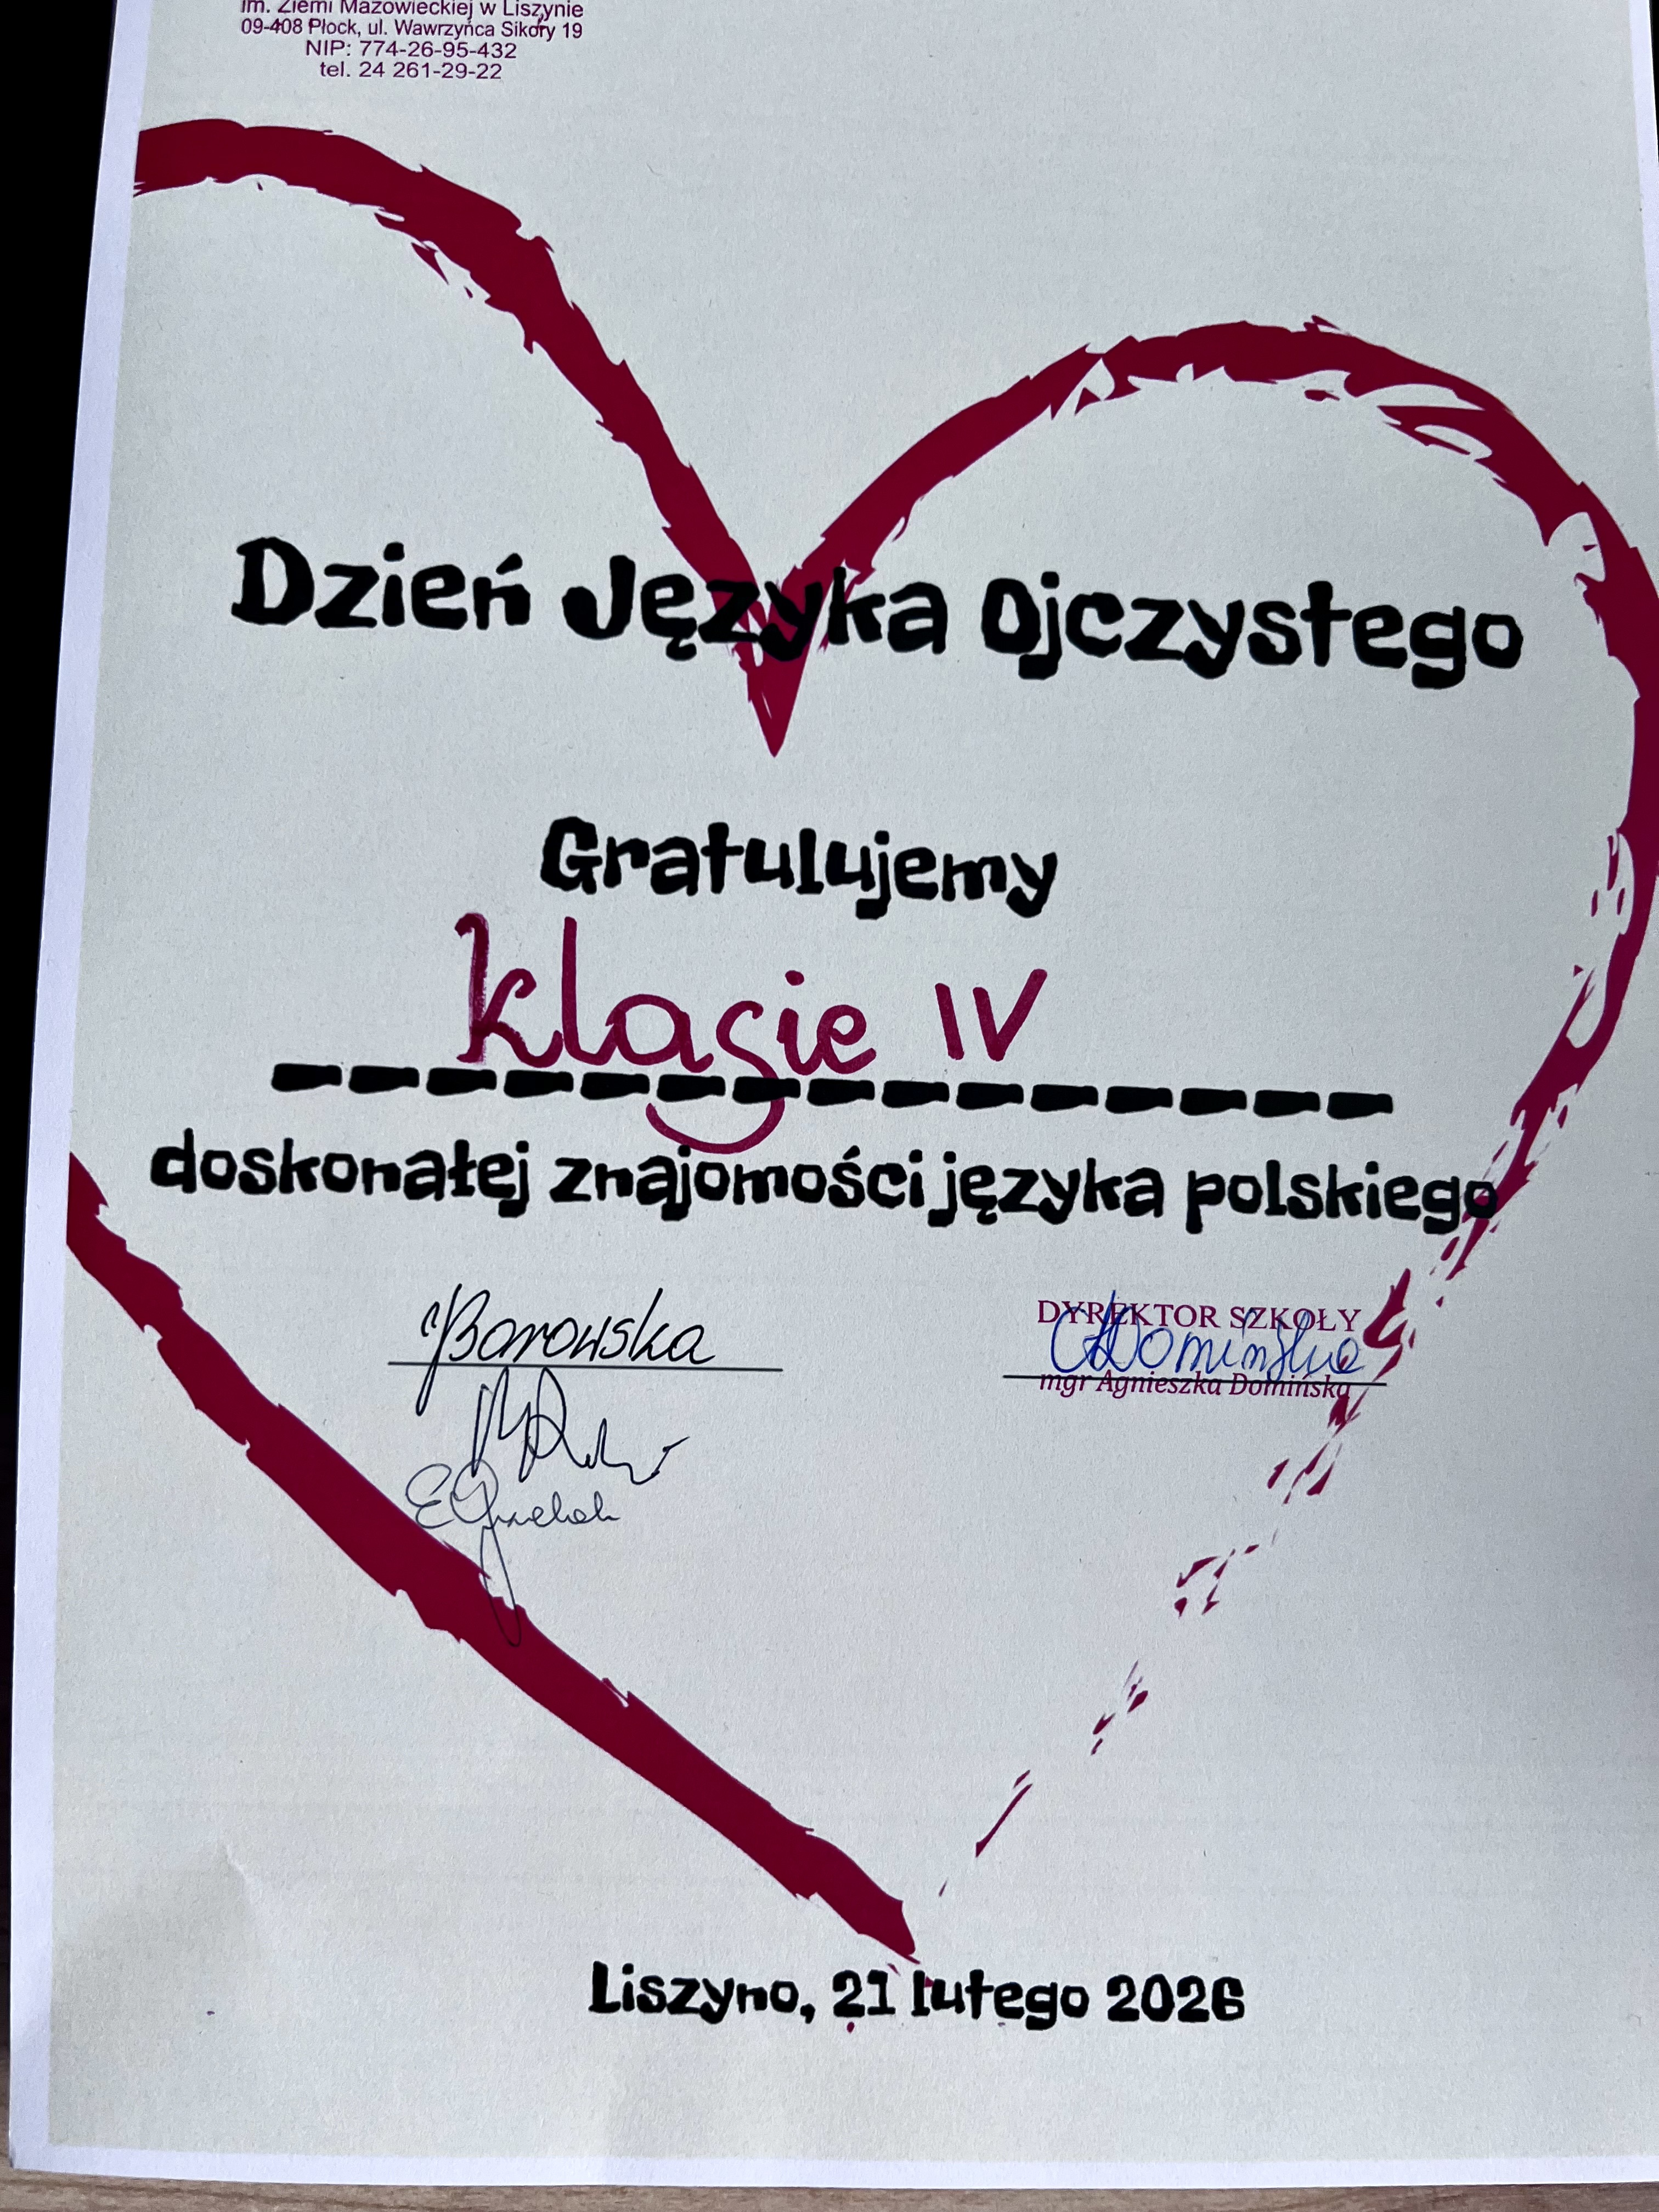 im. Ziemi Mazowieckiej w Liszynie
09-408 Płock, ul. Wawrzyńca Sikory 19
NIP: 774-26-95-432
tel. 24 261-29-22
Dzień Języka Ojczystego
Gratulujemy
klasie IV
doskonałej znajomości języka polskiego
Borowska
DYREKTOR SZKOŁY
ADomińska
mgr Agnieszka Domińska
Liszyno, 21 lutego 2026